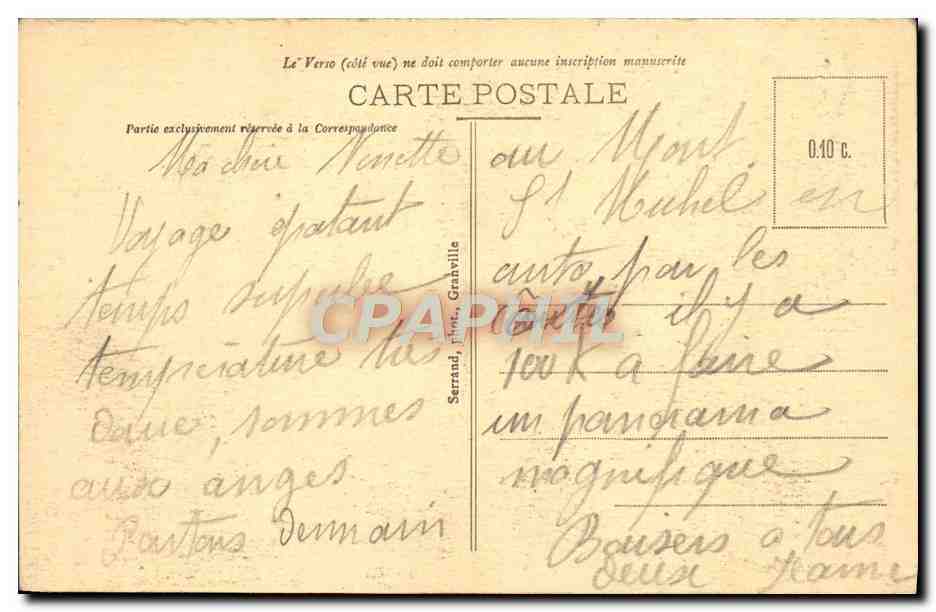 Le Verso (côté vue) ne doit comporter aucune inscription manuscrite
CARTE POSTALE
Partie exclusivement réservée à la Correspondance
0.10 c.
Ma chère Nenette
Voyage épatant
temps superbe
température très
douce, sommes
aux anges
Partons demain
Serrand, phot., Granville
au Mont
St Michel en
auto, par les
côtes il y a
100 K a faire
un panorama
magnifique
Baisers a tous
deux
CPAPHIL